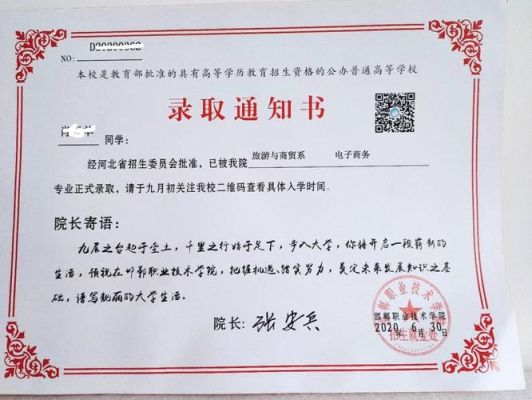 NO:
本校是教育部批准的具有高等学历教育招生资格的公办普通高等学校
录取通知书
同学:
经河北省招生委员会批准,已被我院 旅游与商贸系 电子商务
专业正式录取,请于九月初关注我校二维码查看具体入学时间.
院长寄语:
九层之台起于垒土,千里之行始于足下,步入大学,你将开启一段崭新的
生活,预祝在邯郸职业技术学院,把握机遇、踏实努力,奠定未来发展知识之基
础,谱写靓丽的大学生活.
院长: 张安兵
邯郸职业技术学院
邯郸职业技术学院
2020年 6 月 30日
招生就业处